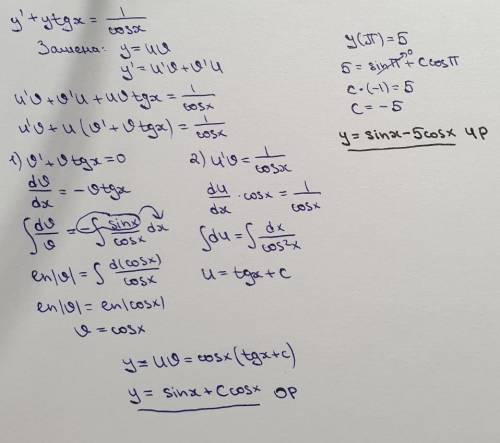 y' + ytgx = 1/cosx
Замена: y = uϑ
y' = u'ϑ + ϑ'u
u'ϑ + ϑ'u + uϑtgx = 1/cosx
u'ϑ + u(ϑ' + ϑtgx) = 1/cosx
1) ϑ' + ϑtgx = 0
dϑ/dx = -ϑtgx
∫dϑ/ϑ = -∫sinx/cosx dx
ln|ϑ| = ∫d(cosx)/cosx
ln|ϑ| = ln|cosx|
ϑ = cosx
2) u'ϑ = 1/cosx
du/dx · cosx = 1/cosx
∫du = ∫dx/cos²x
u = tgx + c
y = uϑ = cosx(tgx + c)
y = sinx + Ccosx ОР
y(π) = 5
5 = sinπ⁰ + Ccosπ
c·(-1) = 5
c = -5
y = sinx - 5cosx ЧР